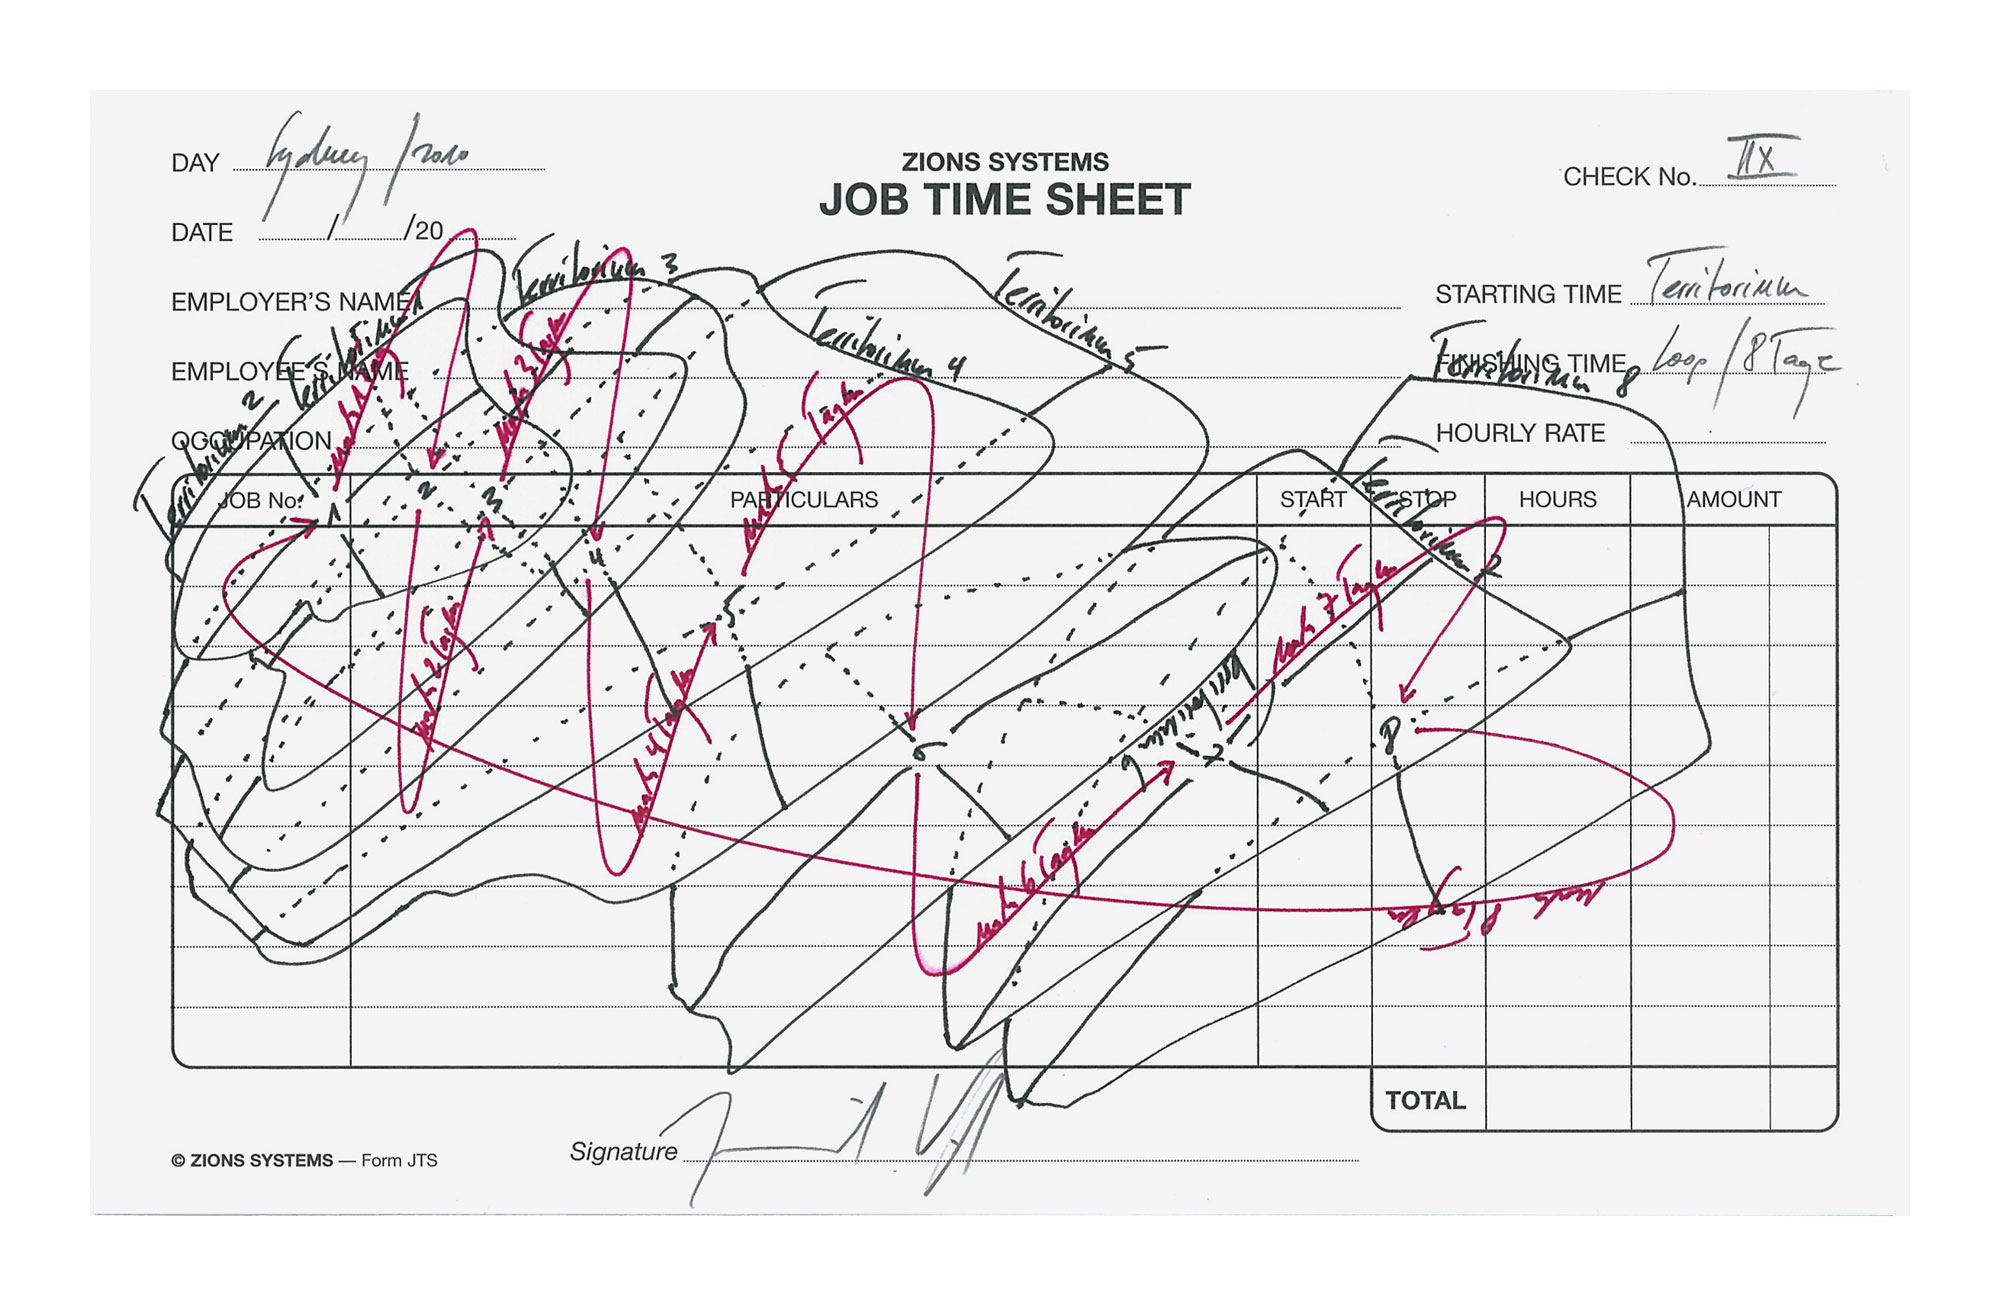 DAY Sydney / 2010
ZIONS SYSTEMS
JOB TIME SHEET
CHECK No. IIX
DATE / /20
EMPLOYER'S NAME
STARTING TIME Territorium
EMPLOYEE'S NAME
FINISHING TIME Loop / 8 Tage
OCCUPATION
HOURLY RATE
Territorium 1
Territorium 2
Territorium 3
Territorium 4
Territorium 5
Territorium
Territorium 8
Territorium
JOB No. PARTICULARS START STOP HOURS AMOUNT
1
2
3
4
5
6
7
8
nach 1 Tag
nach 2 Tagen
nach 3 Tagen
nach 4 Tagen
nach 5 Tagen
nach 6 Tagen
nach 7 Tagen
nach 8 Tagen
TOTAL
Signature
© ZIONS SYSTEMS — Form JTS